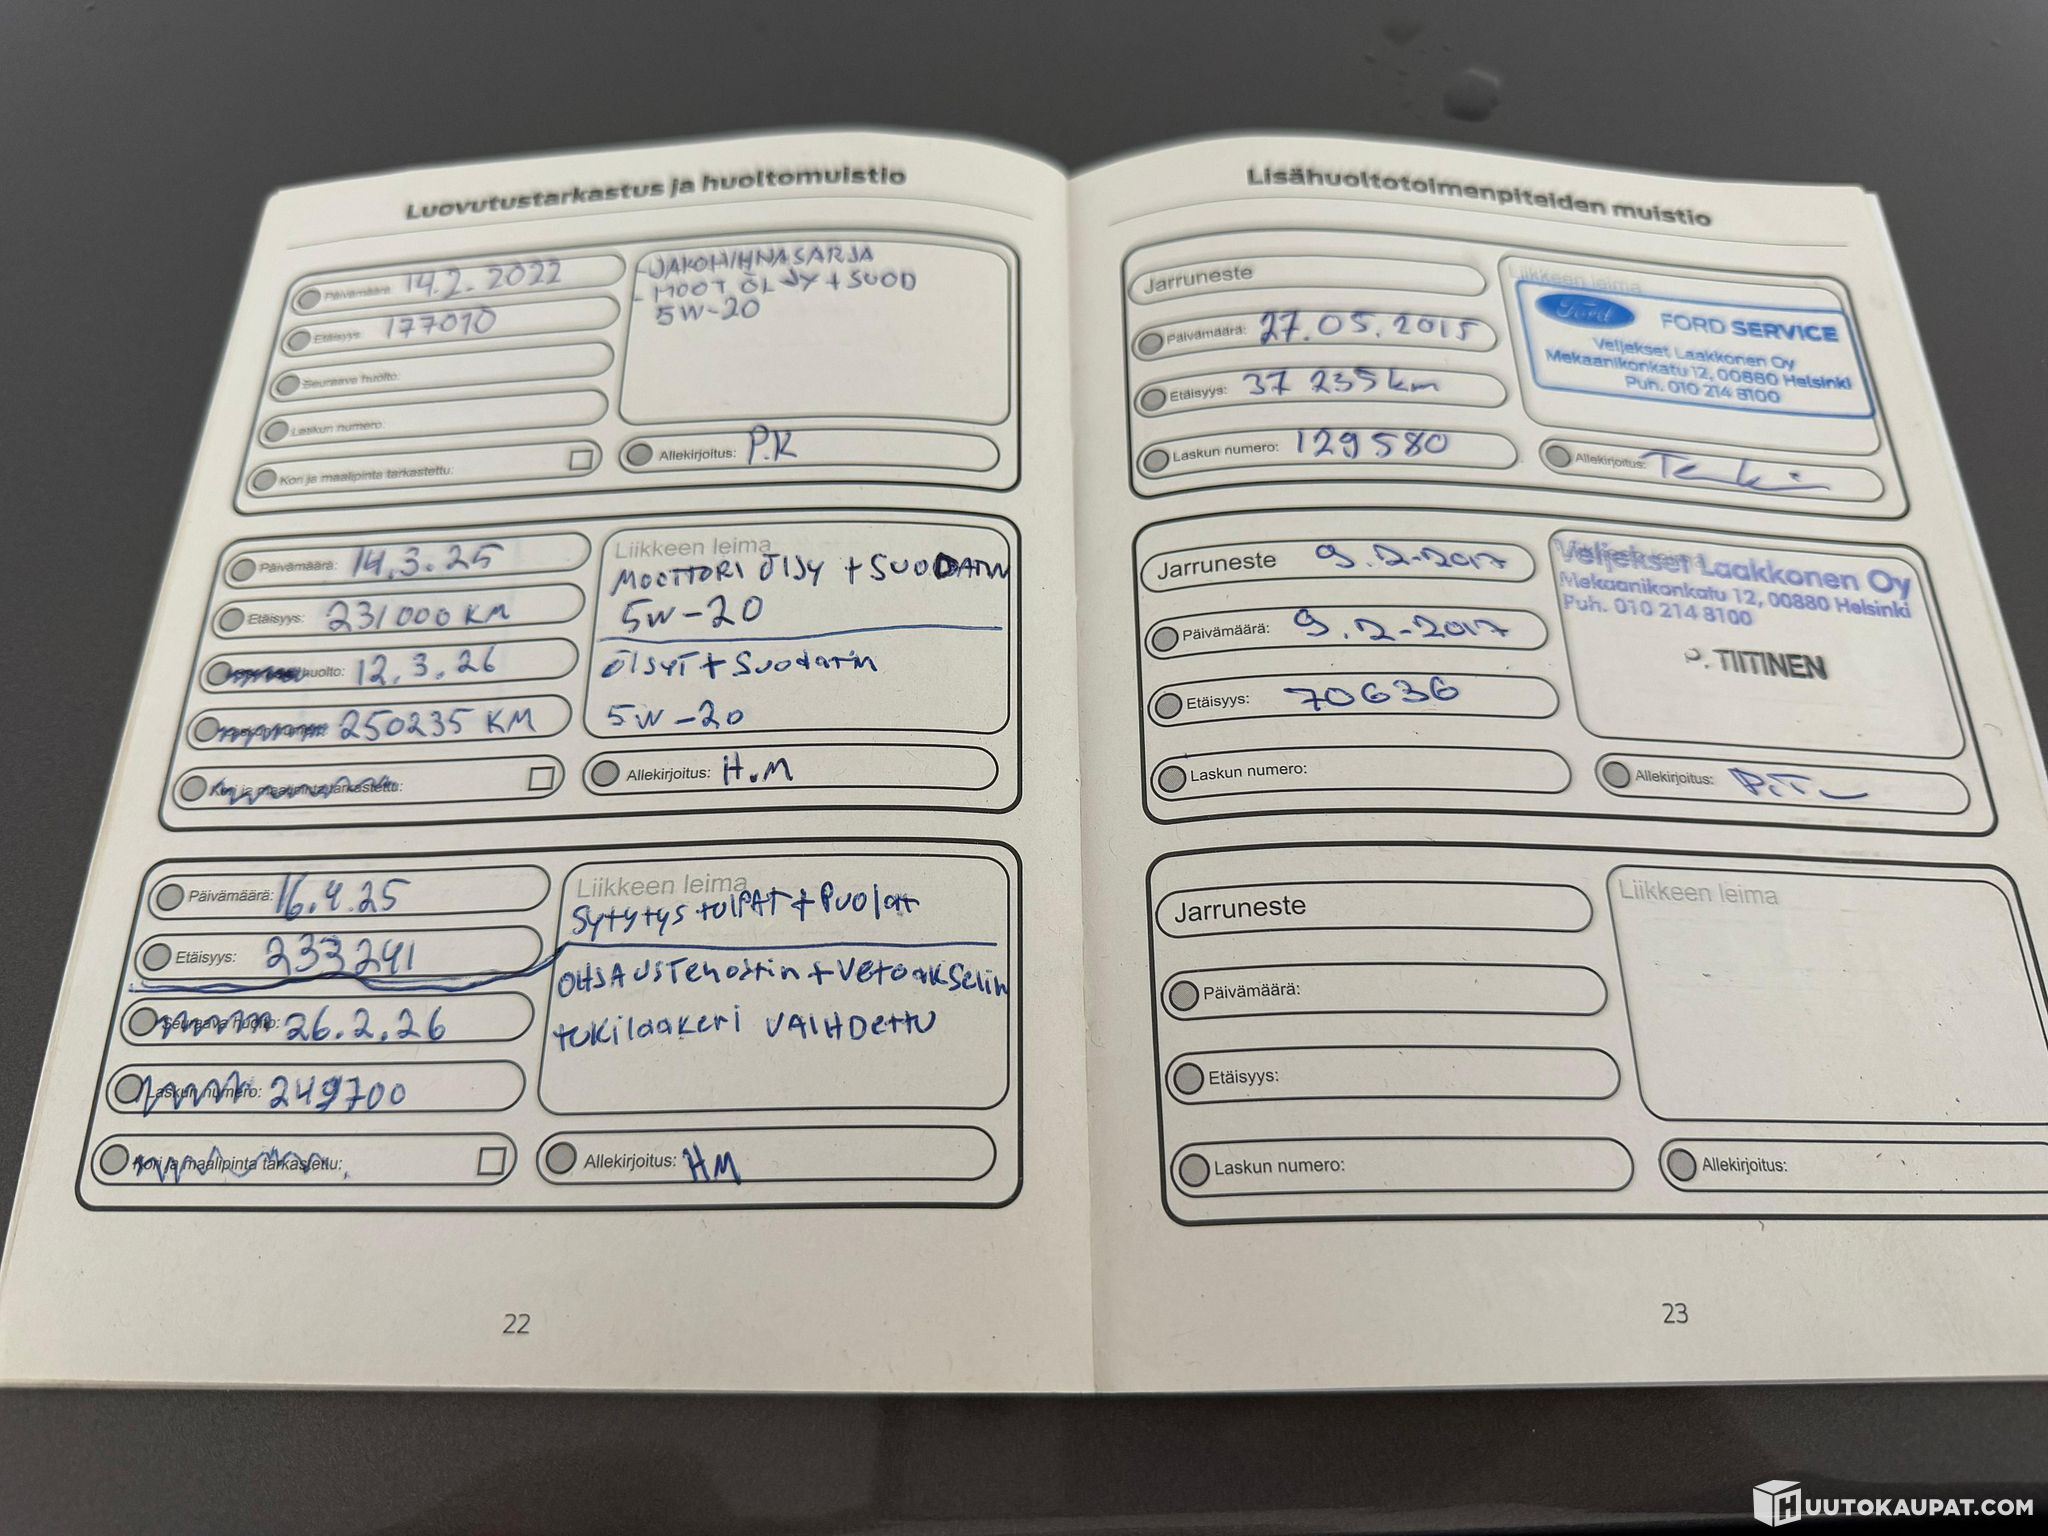 Luovutustarkastus ja huoltomuistio
Päivämäärä: 14.2.2022
Etäisyys: 177010
Seuraava huolto:
Lastikun numero:
Kori ja maalipinta tarkastettu:
- JAKOHIHNASARJA
- MOOT ÖLJY + SUOD
5W-20
Allekirjoitus: P.K
Päivämäärä: 14.3.25
Etäisyys: 231000 KM
huolto: 12.3.26
250235 KM
Kori ja maalipinta tarkastettu:
Liikkeen leima
MOOTTORI ÖLJY + SUODATIN
5W-20
ÖLJYT + Suodatin
5W-20
Allekirjoitus: H.M
Päivämäärä: 16.4.25
Etäisyys: 233241
Seuraava huolto: 26.2.26
Laskun numero: 249700
Kori ja maalipinta tarkastettu:
Liikkeen leima
Sytytys tulPAT + Puolat
OHJAUSTehostin + Vetoakselin
tukilaakeri VAIHDettu
Allekirjoitus: HM
22
Lisähuoltotoimenpiteiden muistio
Jarruneste
Päivämäärä: 27.05.2015
Etäisyys: 37 235 km
Laskun numero: 129580
Liikkeen leima
Ford
FORD SERVICE
Veljekset Laakkonen Oy
Mekaanikonkatu 12, 00880 Helsinki
Puh. 010 214 8100
Allekirjoitus:
Jarruneste 9.2.2017
Päivämäärä: 9.2.2017
Etäisyys: 70636
Laskun numero:
Veljekset Laakkonen Oy
Mekaanikonkatu 12, 00880 Helsinki
Puh. 010 214 8100
P. TIITINEN
Allekirjoitus: P.T
Jarruneste
Päivämäärä:
Etäisyys:
Laskun numero:
Liikkeen leima
Allekirjoitus:
23
HUUTOKAUPAT.COM